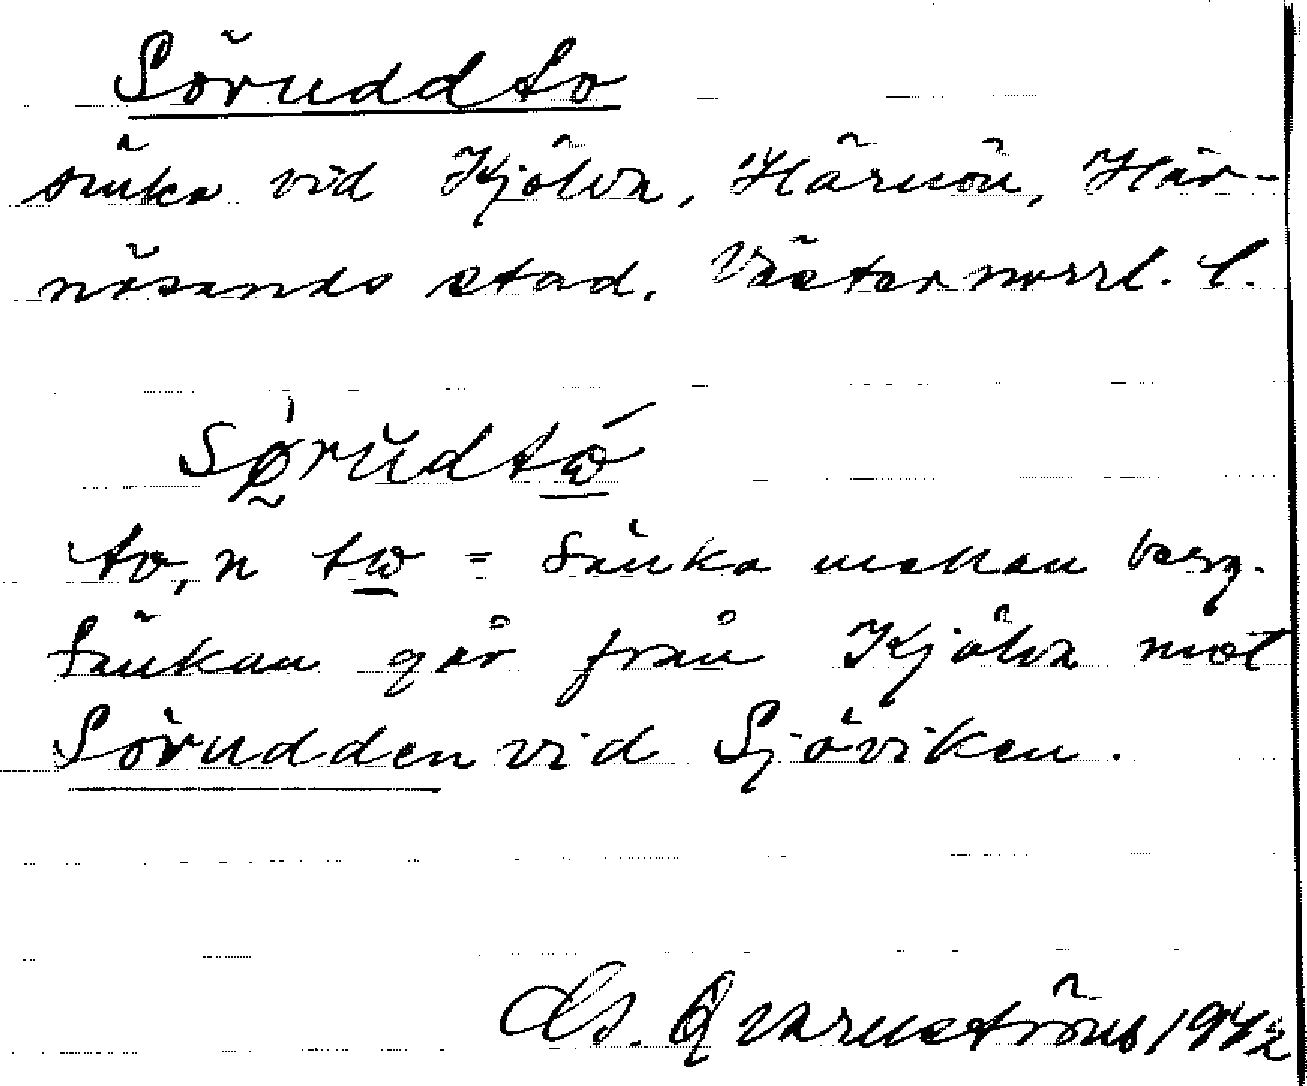 Söruddto
sänka vid Kjölva, Härnön, Här-
nösands stad. Västernorrl. l.
to, n = Sänka mellan berg.
Sänkan går från Kjölva mot
Sörudden vid Sjöviken.
Qvarnström 1942